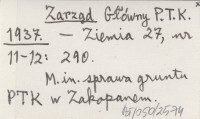 Zarząd Główny P.T.K.
1937. – Ziemia 27, nr
11-12: 290.
M.in. sprawa gruntu
PTK w Zakopanem.